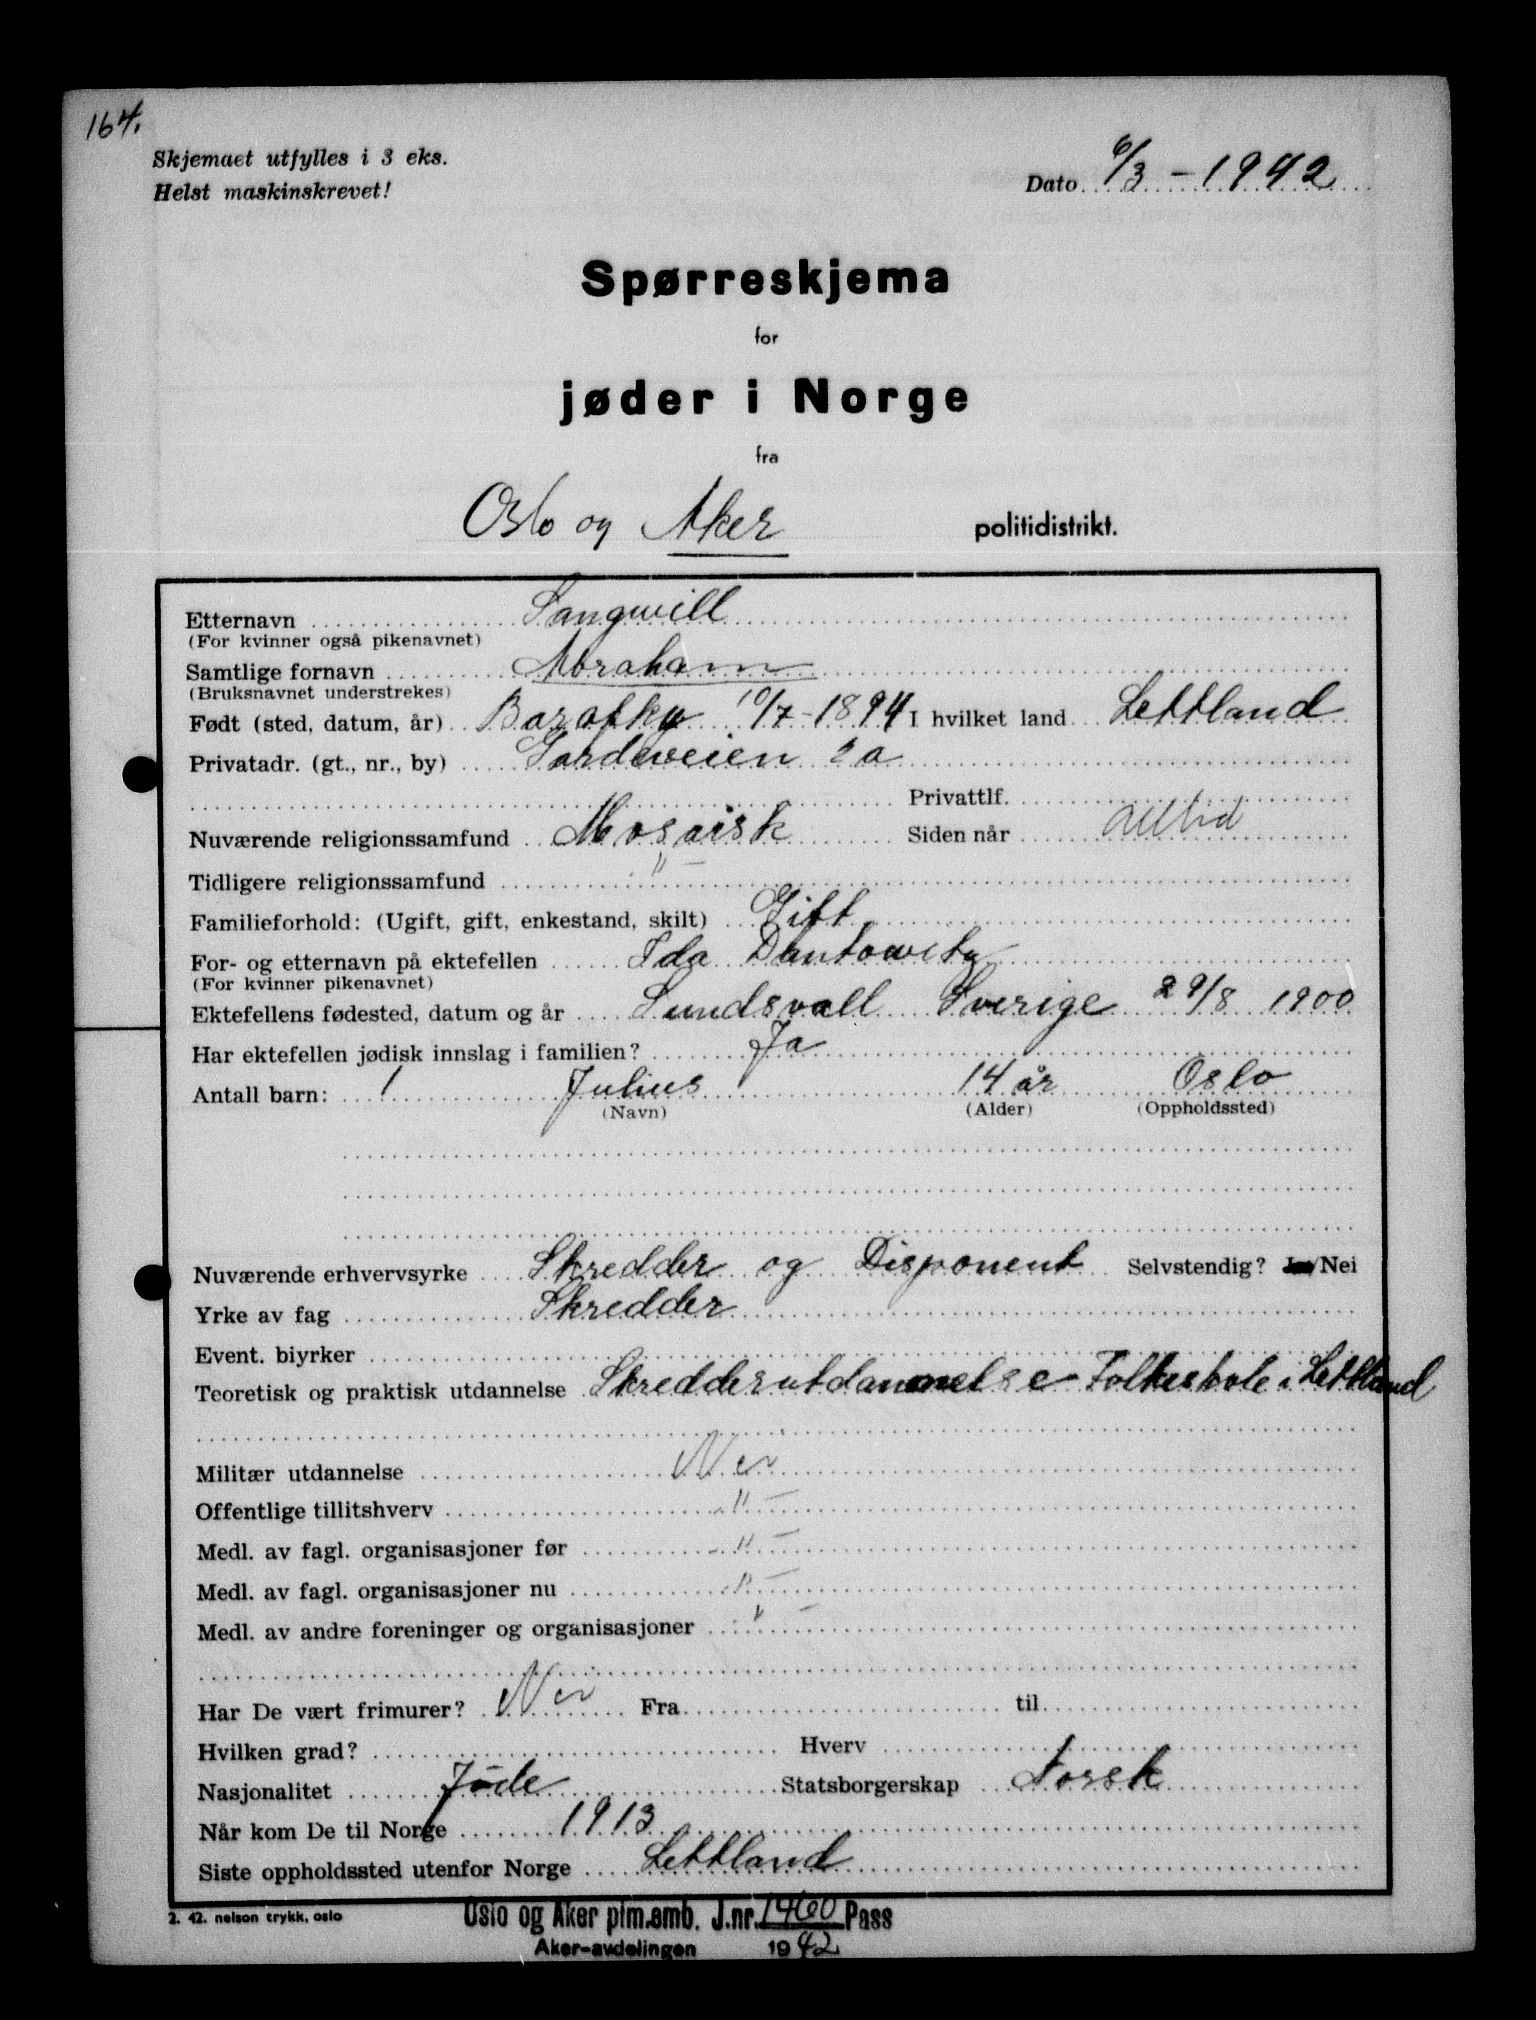 164.
Skjemaet utfylles i 3 eks.
Helst maskinskrevet!
Dato 6/3 - 1942
Spørreskjema
for
jøder i Norge
fra
Oslo og Aker politidistrikt.
Etternavn Sangwill
(For kvinner også pikenavnet)
Samtlige fornavn Abraham
(Bruksnavnet understrekes)
Født (sted, datum, år) 10/7-1894 I hvilket land Lettland
Privatadr. (gt., nr., by) 2a
Privattlf.
Nuværende religionssamfund Mosaisk Siden når Alltid
Tidligere religionssamfund " —
Familieforhold: (Ugift, gift, enkestand, skilt) Gift
For- og etternavn på ektefellen Ida Dantowitz
(For kvinner pikenavnet)
Ektefellens fødested, datum og år Sundsvall Sverige 29/8 1900
Har ektefellen jødisk innslag i familien? Ja
Antall barn: 1 Julius 14 år Oslo
(Navn) (Alder) (Oppholdssted)
Nuværende erhvervsyrke Skredder og Disponent Selvstendig? Ja/Nei
Yrke av fag Skredder
Event. biyrker
Teoretisk og praktisk utdannelse Skredderutdannelse Folkeskole i Lettland
Militær utdannelse Nei
Offentlige tillitshverv - " —
Medl. av fagl. organisasjoner før - " —
Medl. av fagl. organisasjoner nu - " —
Medl. av andre foreninger og organisasjoner " —
Har De vært frimurer? Nei Fra til
Hvilken grad? Hverv
Nasjonalitet Jøde Statsborgerskap Norsk
Når kom De til Norge 1913
Siste oppholdssted utenfor Norge Lettland
2. 42. nelson trykk, oslo
Oslo og Aker plm.emb. J.nr. 1960 Pass
Aker-avdelingen 1942